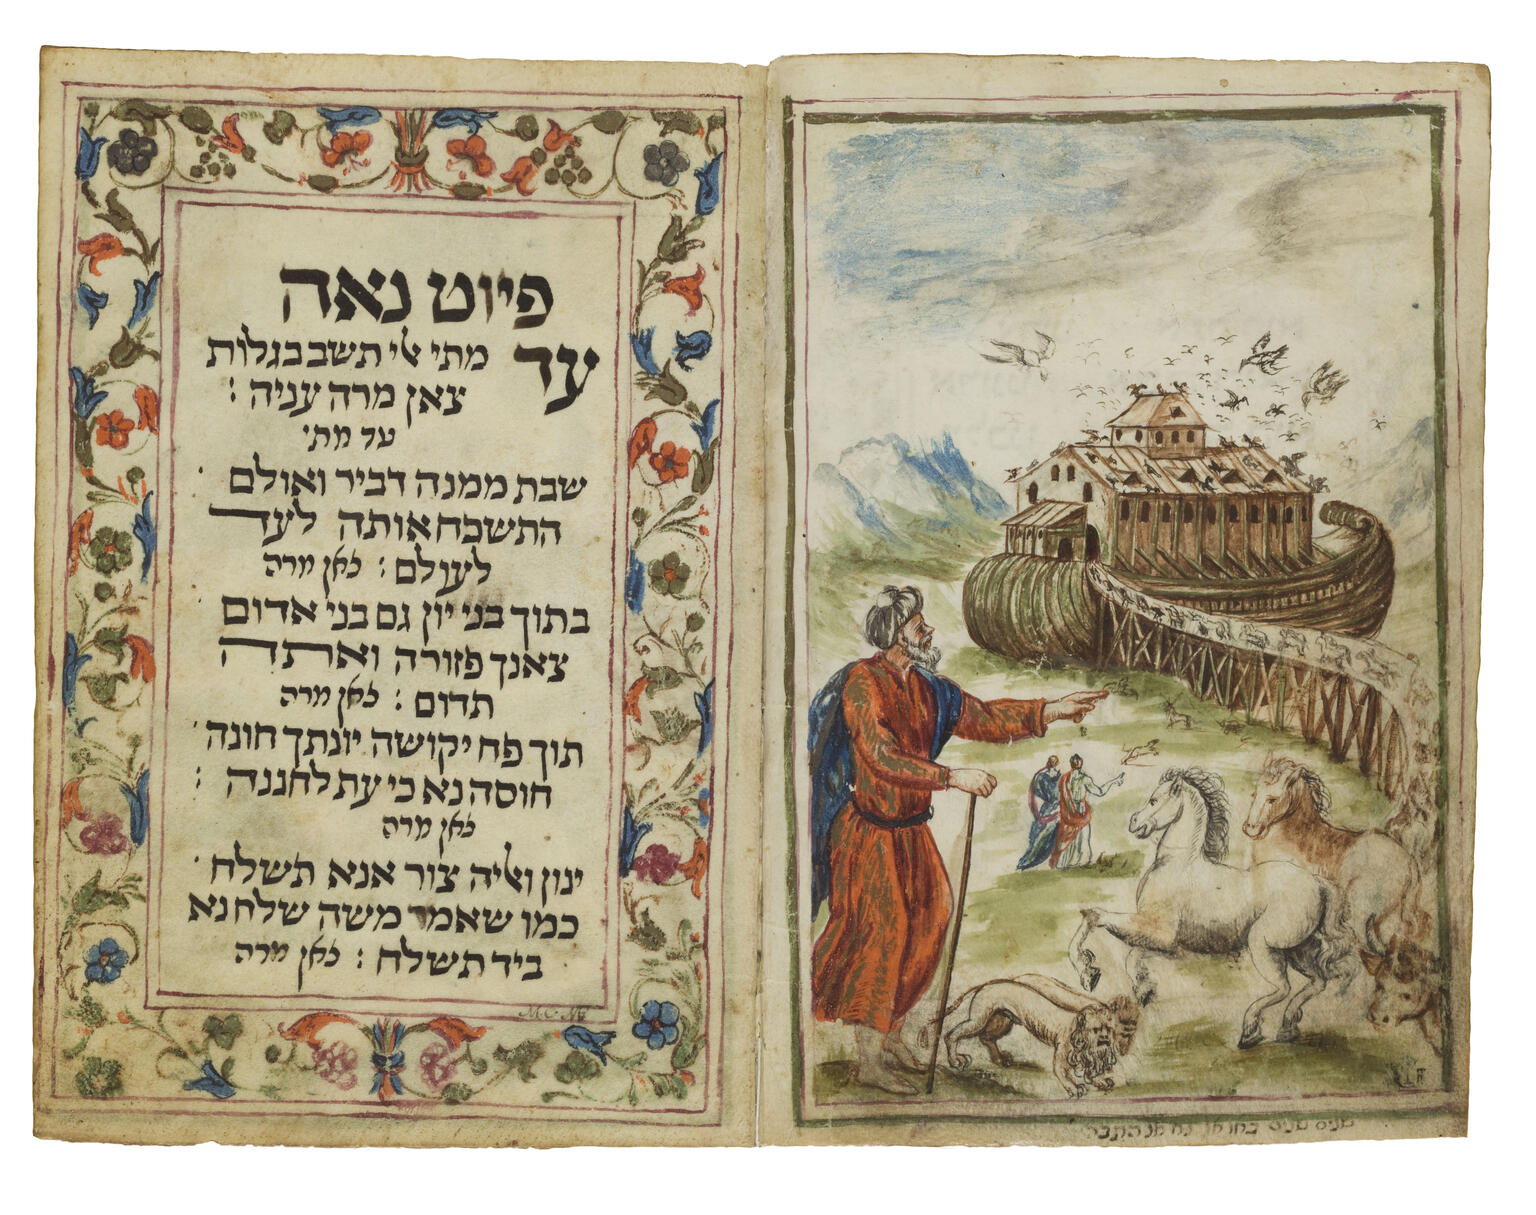 פיוט נאה
עד מתי אלי תשב בגלות
צאן מרה עניה :
עד מתי
שבת ממנה דביר ואולם
התשכח אותה לעד
לעולם : צאן מרה
בתוך בני יון גם בני אדום
צאנך פזורה ואתה
תדום : צאן מרה
תוך פח יקושה יונתך חונה
חוסה נא כי עת לחננה :
צאן מרה
ינון ואליה צור אנא תשלח
כמו שאמר משה שלח נא
ביד תשלח : צאן מרה
שנים שנים באו אל נח אל התבה